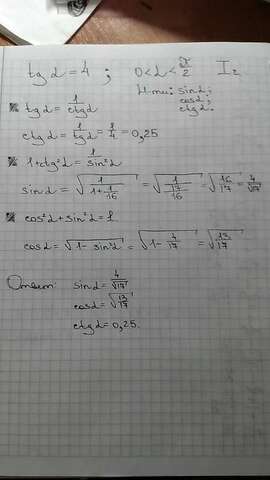 tg α = 4 ; 0 < α < π/2 I₂
Н-ти: sin α;
cos α;
ctg α.
tg α = 1/ctg α
ctg α = 1/tg α = 1/4 = 0,25
1 + ctg² α = 1/sin² α
sin α = √(1/(1 + 1/16)) = √(1/(17/16)) = √(16/17) = 4/√17
cos² α + sin² α = 1
cos α = √(1 - sin² α) = √(1 - 4/17) = √(13/17)
Ответ: sin α = 4/√17
cos α = √(13/17)
ctg α = 0,25.